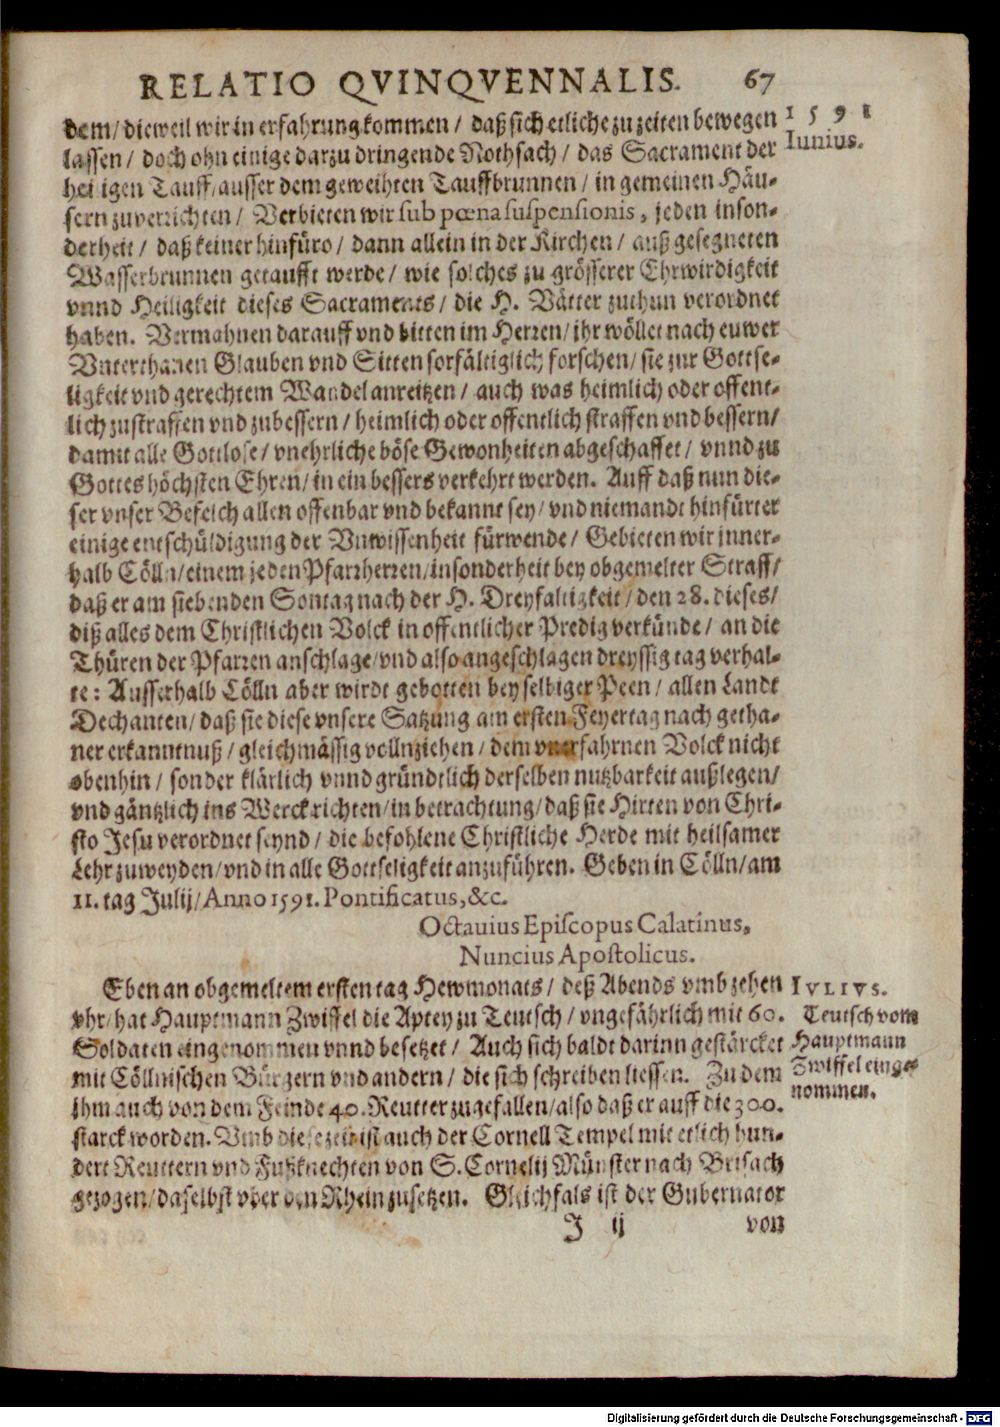 RELATIO QVINQVENNALIS. 67
dem/ dieweil wir in erfahrung kommen / daß sich etliche zu zeiten bewegen
1591
Iunius.
lassen / doch ohn einige darzu dringende Nothsach / das Sacrament der
heiligen Tauff/ ausser dem geweihten Tauffbrunnen / in gemeinen Häu-
sern zuverrichten / Verbieten wir sub pœna suspensionis, jeden inson-
derheit / daß keiner hinfüro / dann allein in der Kirchen / auß gesegneten
Wasserbrunnen getaufft werde / wie solches zu grösserer Ehrwirdigkeit
vnnd Heiligkeit dieses Sacraments / die H. Vätter zuthun verordnet
haben. Vermahnen darauff vnd bitten im Herren / jhr wöllet nach euwer
Vnterthanen Glauben vnd Sitten sorfältiglich forschen / sie zur Gottse-
ligkeit vnd gerechtem Wandel anreitzen / auch was heimlich oder offent-
lich zustraffen vnd zubessern / heimlich oder offentlich straffen vnd bessern /
damit alle Gottlose / vnehrliche böse Gewonheiten abgeschaffet / vnnd zu
Gottes höchsten Ehren / in ein bessers verkehrt werden. Auff daß nun die-
ser vnser Befelch allen offenbar vnd bekannt sey / vnd niemandt hinfürter
einige entschüldigung der Vnwissenheit fürwende / Gebieten wir inner-
halb Cölln / einem jeden Pfarrherren / insonderheit bey obgemelter Straff /
daß er am siebenden Sontag nach der H. Dreyfaltigkeit / den 28. dieses /
diß alles dem Christlichen Volck in offentlicher Predig verkünde / an die
Thüren der Pfarren anschlage / vnd also angeschlagen dreyssig tag verhal-
te : Ausserhalb Cölln aber wirdt gebotten bey selbiger Peen / allen Landt
Dechanten / daß sie diese vnsere Satzung am ersten Feyertag nach getha-
ner erkanntnuß / gleichmässig vollnziehen / dem vnerfahrnen Volck nicht
obenhin / sonder klärlich vnnd gründtlich derselben nutzbarkeit außlegen /
vnd gäntzlich ins Werck richten / in betrachtung / daß sie Hirten von Chri-
sto Jesu verordnet seynd / die befohlene Christliche Herde mit heilsamer
Lehr zuweyden / vnd in alle Gottseligkeit anzuführen. Geben in Cölln / am
11. tag Julij / Anno 1591. Pontificatus, &c.
Octauius Episcopus Calatinus,
Nuncius Apostolicus.
Eben an obgemeltem ersten tag Hewmonats / deß Abends vmb zehen
IVLIVS.
vhr / hat Hauptmann Zwiffel die Aptey zu Teutsch / vngefährlich mit 60.
Teutsch vom
Soldaten eingenommen vnnd besetzet / Auch sich baldt darinn gestärcket
Hauptmann
mit Cöllnischen Bürgern vnd andern / die sich schreiben liessen. Zu dem
Zwiffel einge-
jhm auch von dem Feinde 40. Reutter zugefallen / also daß er auff die 300.
nommen.
starck worden. Vmb diese zeit ist auch der Cornell Tempel mit etlich hun-
dert Reuttern vnd Fußknechten von S. Cornelij Münster nach Brisach
gezogen / daselbst vber den Rhein zusetzen. Gleichfals ist der Gubernator
J ij von
Digitalisierung gefördert durch die Deutsche Forschungsgemeinschaft - DFG